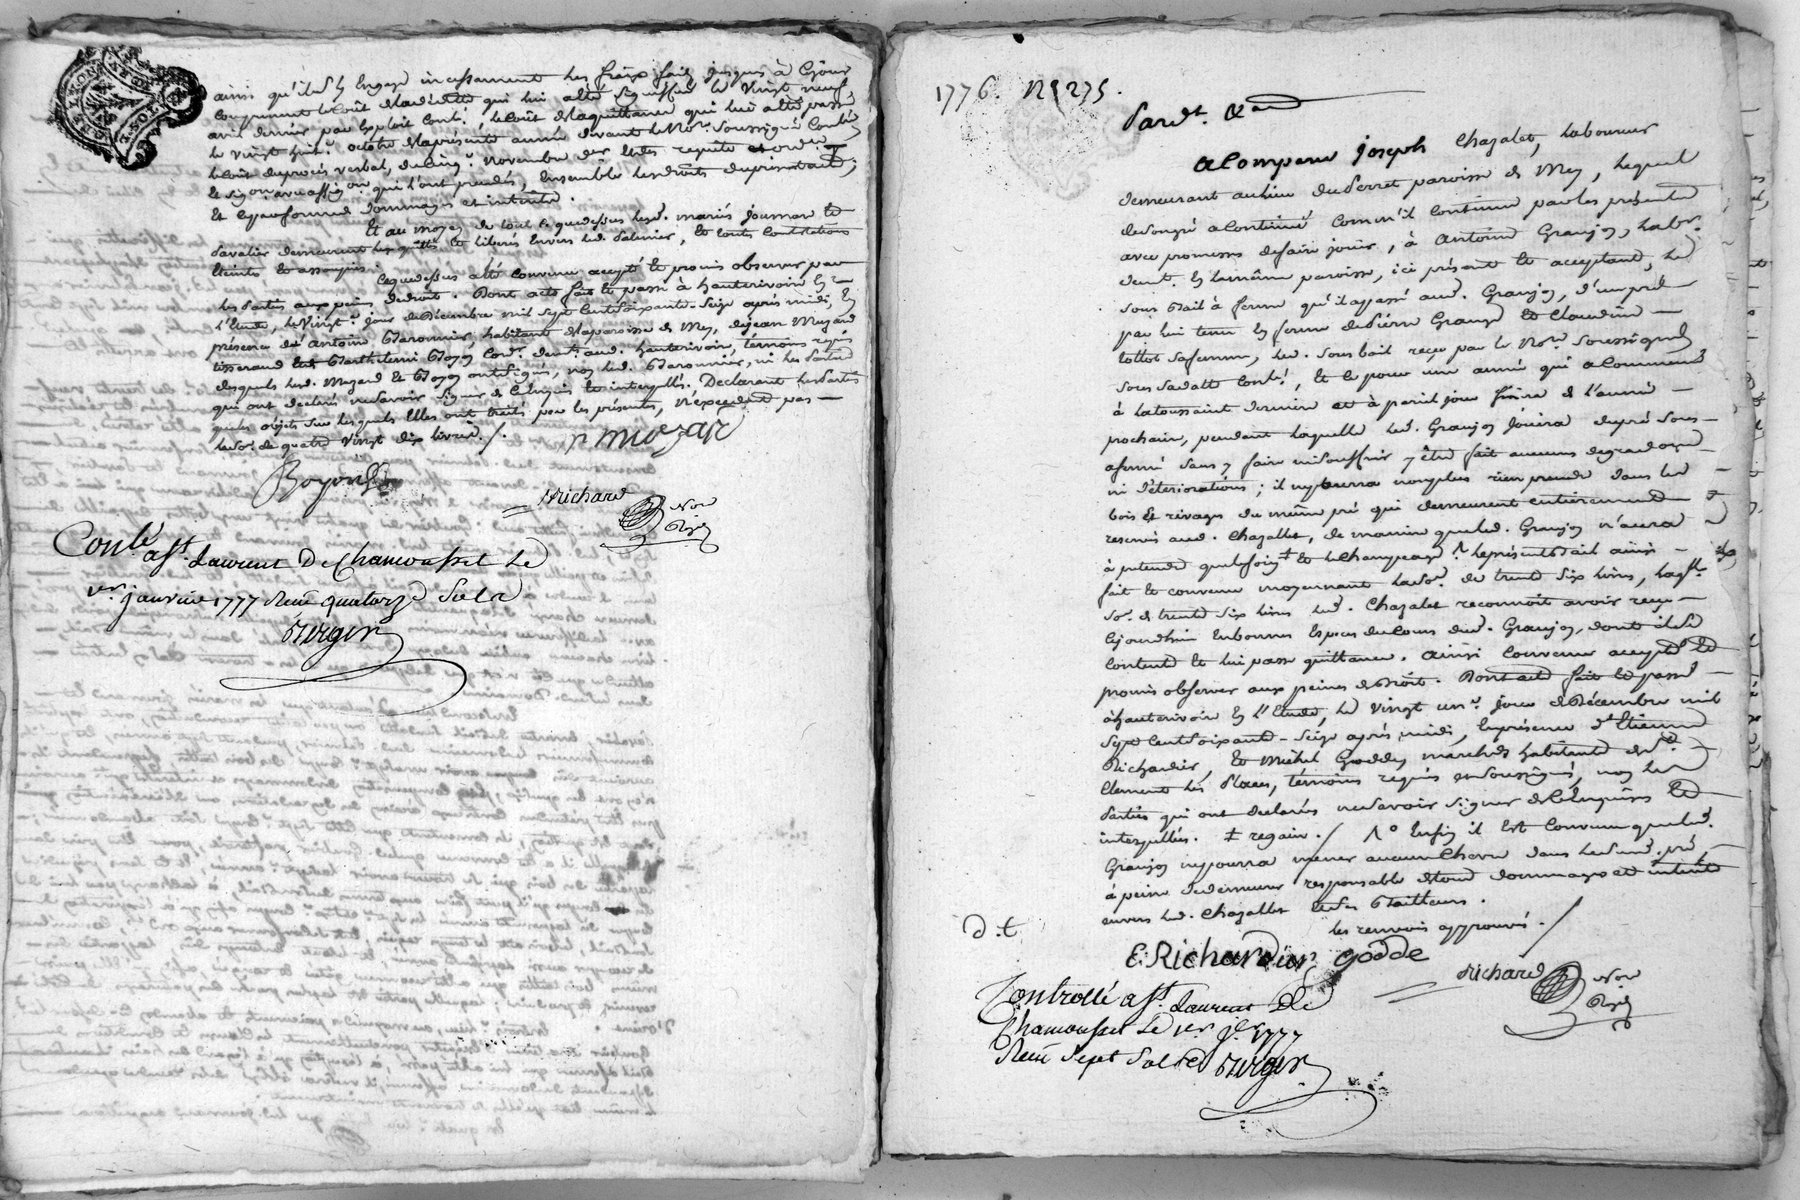 ainsi qu'ils s'y engage incessament les fraix faits jusques à cejour
comprenant le Coût de la cédulle qui lui a été signiffiée le vingt neuf
avril dernier par Exploit Conlé. le Coût de la quittance qui lui a été passée
le vingt huit e. octobre de la présente année devant le Nore. soussigné Conlée
le Coût du procès verbal, du cinq e. novembre der. les requête et orde.
et sig on. avec assig on. qui l'ont précédés, Ensemble les droits du présent acte,
et ce pour forme de dommages et intérêts.
Et au moyen de tout ce que dessus lesd. mariés journoud et
Savatier demeurent les quittes et libérés envers led. Palmier, et toutes contestations
éteintes et assoupies.
Ce que dessus a été convenu accepté et promis observer par
les parties aux peines de droit. Dont acte fait et passé à hauterivoire En
l'Etude, le vingt e. jour de Décembre mil sept Cent soixante-seize après midi, En
présence de antoine Baronnier, habitant de la paroisse de Mey, de jean Muzard
tisserand et de Barthelemi Boyon Cord. deurts. aud. hauterivoire, témoins requis
desquels led. Muzard et Boyon ont signés, non led. Baronnier, ni les Parties
qui ont déclarés ne savoir signer de ce Enquis et interpellés. Déclarant les Parties
que les objets sur lesquels Elles ont traités par les présentes, n'excedent pas
la Se. de quatre vingt dix livres./.
muzar
Boyon
Richard Nore Royal
Conlé. a St. Laurent De Chamousset le
1er. janvier 1777 Reçu quatorze Sols
Berger
1776. N° 275.
Pardt. &a
a Comparu joseph Chazalet, laboureur
demeurant au lieu du Perret paroisse de Mey, lequel
de son gré a Continué comm'il continue par les présentes
avec promesses de faire jouir, à antoine Granjon, labr.
deurt. En la même paroisse, ici présent et acceptant, le
sous Bail à ferme qu'il a passé aud. Granjon, d'un pré
par lui tenu En ferme de Pierre Grange et Claudine
sa femme, led. sous bail reçu par le Nore. soussigné
sous sa datte Conlé, et ce pour une année qui a Commencé
à la toussaint dernière et à pareil jour finira de l'année
prochaine, pendant laquelle led. Granjon jouira du pré sous-
afermé sans y faire ni souffrir y être fait aucunes degradations
ni déteriorations; il ny pourra non plus rien prendre dans les
bois et rivages du même pré qui demeurent entierement
reservés aud. Chazallet, de maniere que led. Granjon n'aura
à prétendre que le foin ‡ et le Champeage /1° le présent Bail ainsi
fait et convenu moyennant la Se. de trente six livres, laquelle
Se. de trente six livres led. Chazalet reconnoit avoir reçu
cejourdhui En bonnes Especes du Cours dud. Granjon, dont il est
Content et lui passe quittance. ainsi Convenu accepté et
promis observer aux peines de droit. Dont acte fait et passé
à hauterivoire En l'Etude, le vingt un e. jour de Décembre mil
Sept Cent soixante-seize après midi, En présence d'Etienne
Richardier, et Michel Goddey marchds. habitants de St.
Clement les Places, témoins requis et soussignés, non les
Parties qui ont déclarés ne savoir signer de ce Enquises et
interpellées. ‡ regain./ /1° Enfin il est Convenu que led.
Granjon ny pourra mener aucune Chevre dans le susd. pré,
à peine de demeurer responsable de tous dommages et intérêts
envers led. Chazallet et ses Bailleurs.
les renvois approuvés./
d. t.
E: Richardier godde
Richard Nore Royal
Controllé a St. Laurent De
Chamousset Le 1er. jer. 1777
Reçu Sept Sols Berger